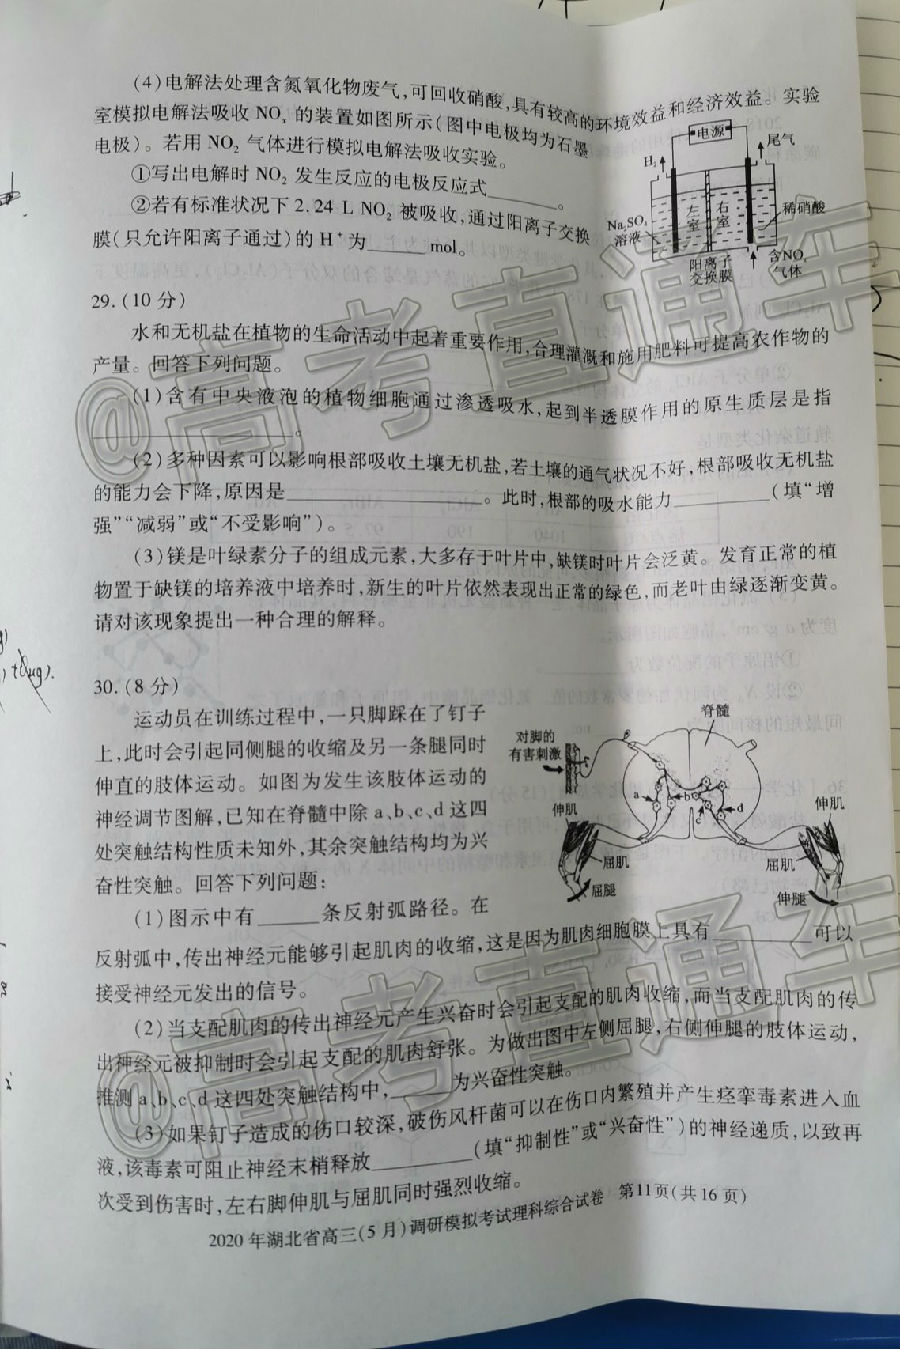 (4)电解法处理含氮氧化物废气,可回收硝酸,具有较高的环境效益和经济效益。实验
室模拟电解法吸收 NOx 的装置如图所示(图中电极均为石墨
电极)。若用 NO2 气体进行模拟电解法吸收实验。
①写出电解时 NO2 发生反应的电极反应式________。
②若有标准状况下 2.24 L NO2 被吸收,通过阳离子交换
膜(只允许阳离子通过)的 H+为______mol。
电源
H2
尾气
Na2SO4
溶液
左室
右室
稀硝酸
阳离子
交换膜
含NOx
气体
29.(10 分)
水和无机盐在植物的生命活动中起着重要作用,合理灌溉和施用肥料可提高农作物的
产量。回答下列问题。
(1)含有中央液泡的植物细胞通过渗透吸水,起到半透膜作用的原生质层是指
________________。
(2)多种因素可以影响根部吸收土壤无机盐,若土壤的通气状况不好,根部吸收无机盐
的能力会下降,原因是________________。此时,根部的吸水能力________(填“增
强”“减弱”或“不受影响”)。
(3)镁是叶绿素分子的组成元素,大多存于叶片中,缺镁时叶片会泛黄。发育正常的植
物置于缺镁的培养液中培养时,新生的叶片依然表现出正常的绿色,而老叶由绿逐渐变黄。
请对该现象提出一种合理的解释。
30.(8 分)
运动员在训练过程中,一只脚踩在了钉子
上,此时会引起同侧腿的收缩及另一条腿同时
伸直的肢体运动。如图为发生该肢体运动的
神经调节图解,已知在脊髓中除 a、b、c、d 这四
处突触结构性质未知外,其余突触结构均为兴
奋性突触。回答下列问题:
脊髓
对脚的
有害刺激
a
b
c
d
伸肌
屈肌
屈腿
伸肌
屈肌
伸腿
(1)图示中有______条反射弧路径。在
反射弧中,传出神经元能够引起肌肉的收缩,这是因为肌肉细胞膜上具有________可以
接受神经元发出的信号。
(2)当支配肌肉的传出神经元产生兴奋时会引起支配的肌肉收缩,而当支配肌肉的传
出神经元被抑制时会引起支配的肌肉舒张。为做出图中左侧屈腿,右侧伸腿的肢体运动,
推测 a、b、c、d 这四处突触结构中,______为兴奋性突触。
(3)如果钉子造成的伤口较深,破伤风杆菌可以在伤口内繁殖并产生痉挛毒素进入血
液,该毒素可阻止神经末梢释放________(填“抑制性”或“兴奋性”)的神经递质,以致再
次受到伤害时,左右脚伸肌与屈肌同时强烈收缩。
2020 年湖北省高三(5 月)调研模拟考试理科综合试卷 第11页(共16页)
@高考直通车
@高考直通车